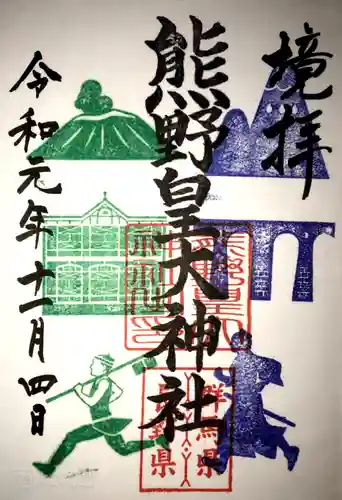 境拝
熊野皇大神社
令和元年十一月四日
群馬県
長野県